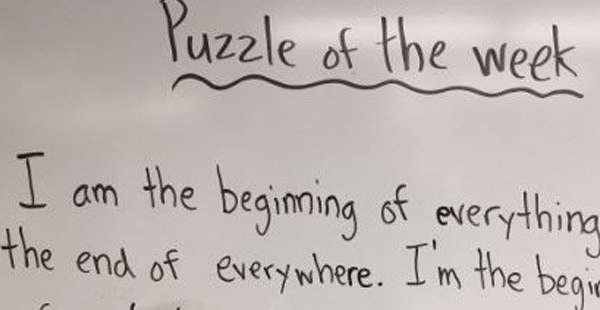 Puzzle of the week
I am the beginning of everything
the end of everywhere. I'm the begin